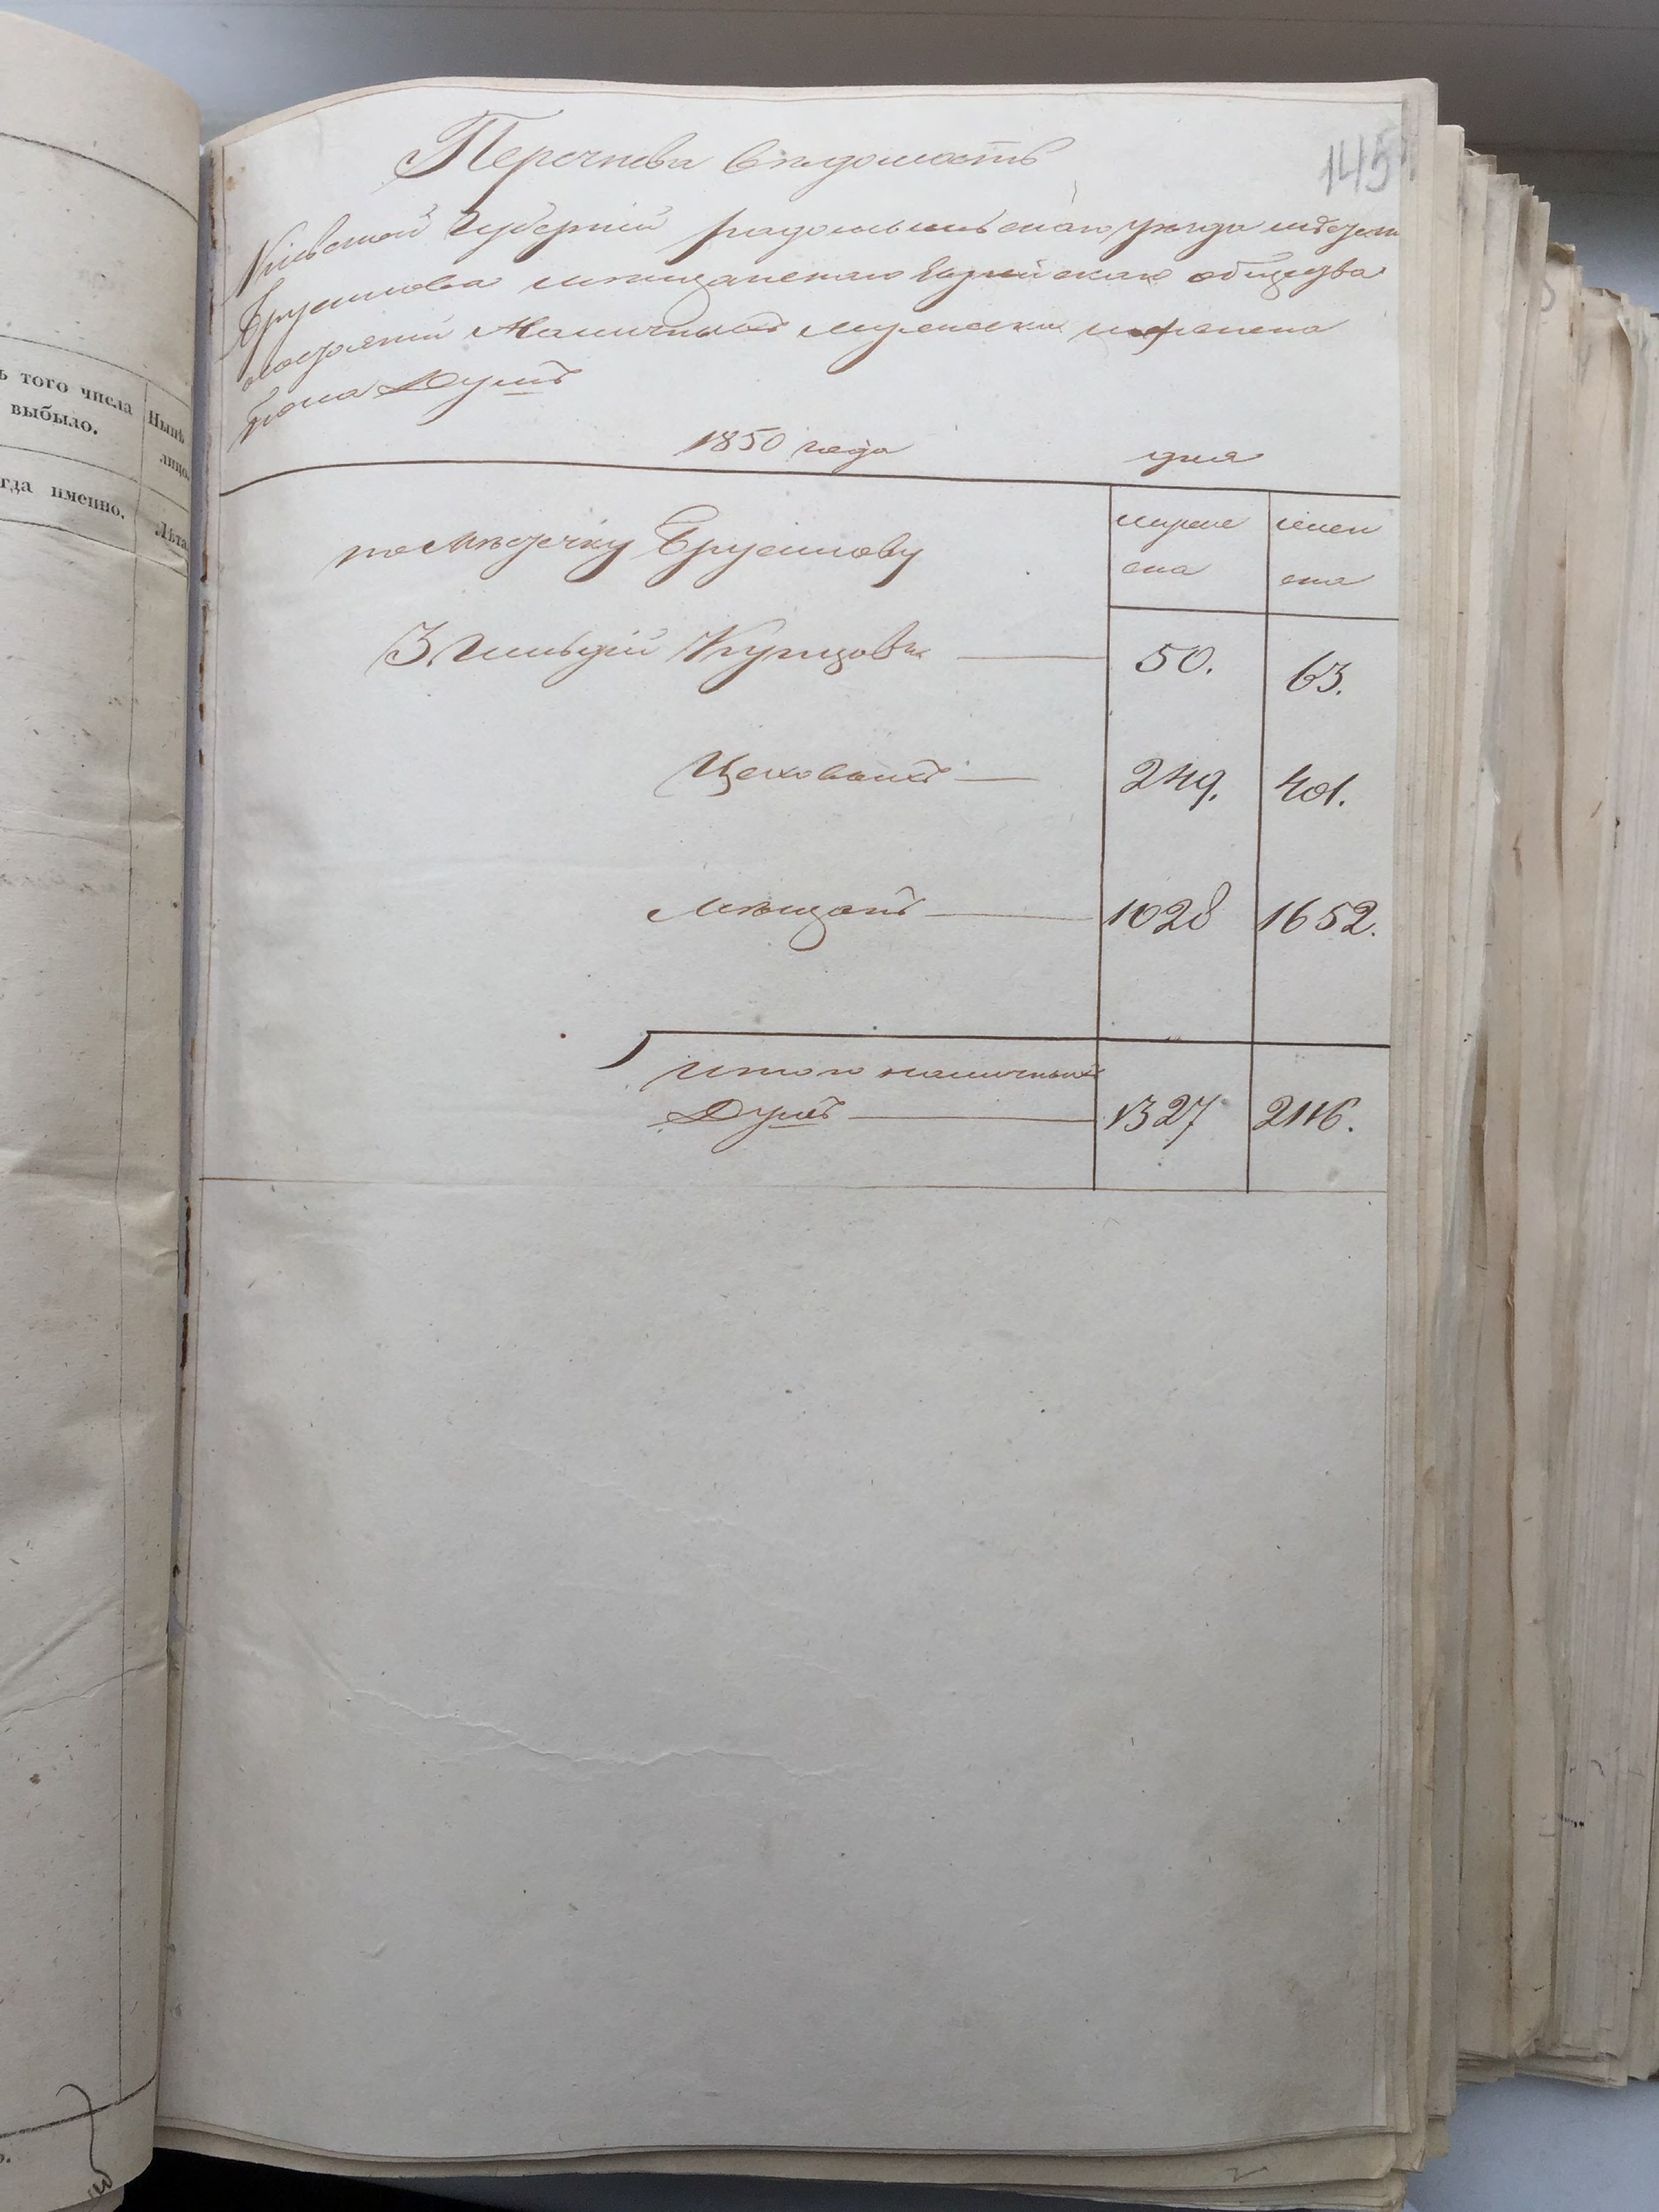 ъ того числа
выбыло.
гда именно.
Нынѣ
лицо.
Лѣта
145
Перечнева вѣдомость
Кіевской Губерніи радомысльскаго уѣзда
Брусилова мещанскаго Еврейскаго общества
о состоянии Наличныхъ мужеска и женска
пола Душъ
1850 года дня
по мѣстечку Брусилову
мужеска
женска
3 Гильдіи Купцовъ 50. 63.
Цеховыхъ 249. 401.
Мѣщанъ 1028 1652.
Итого наличныхъ
Душъ 1327 2116.